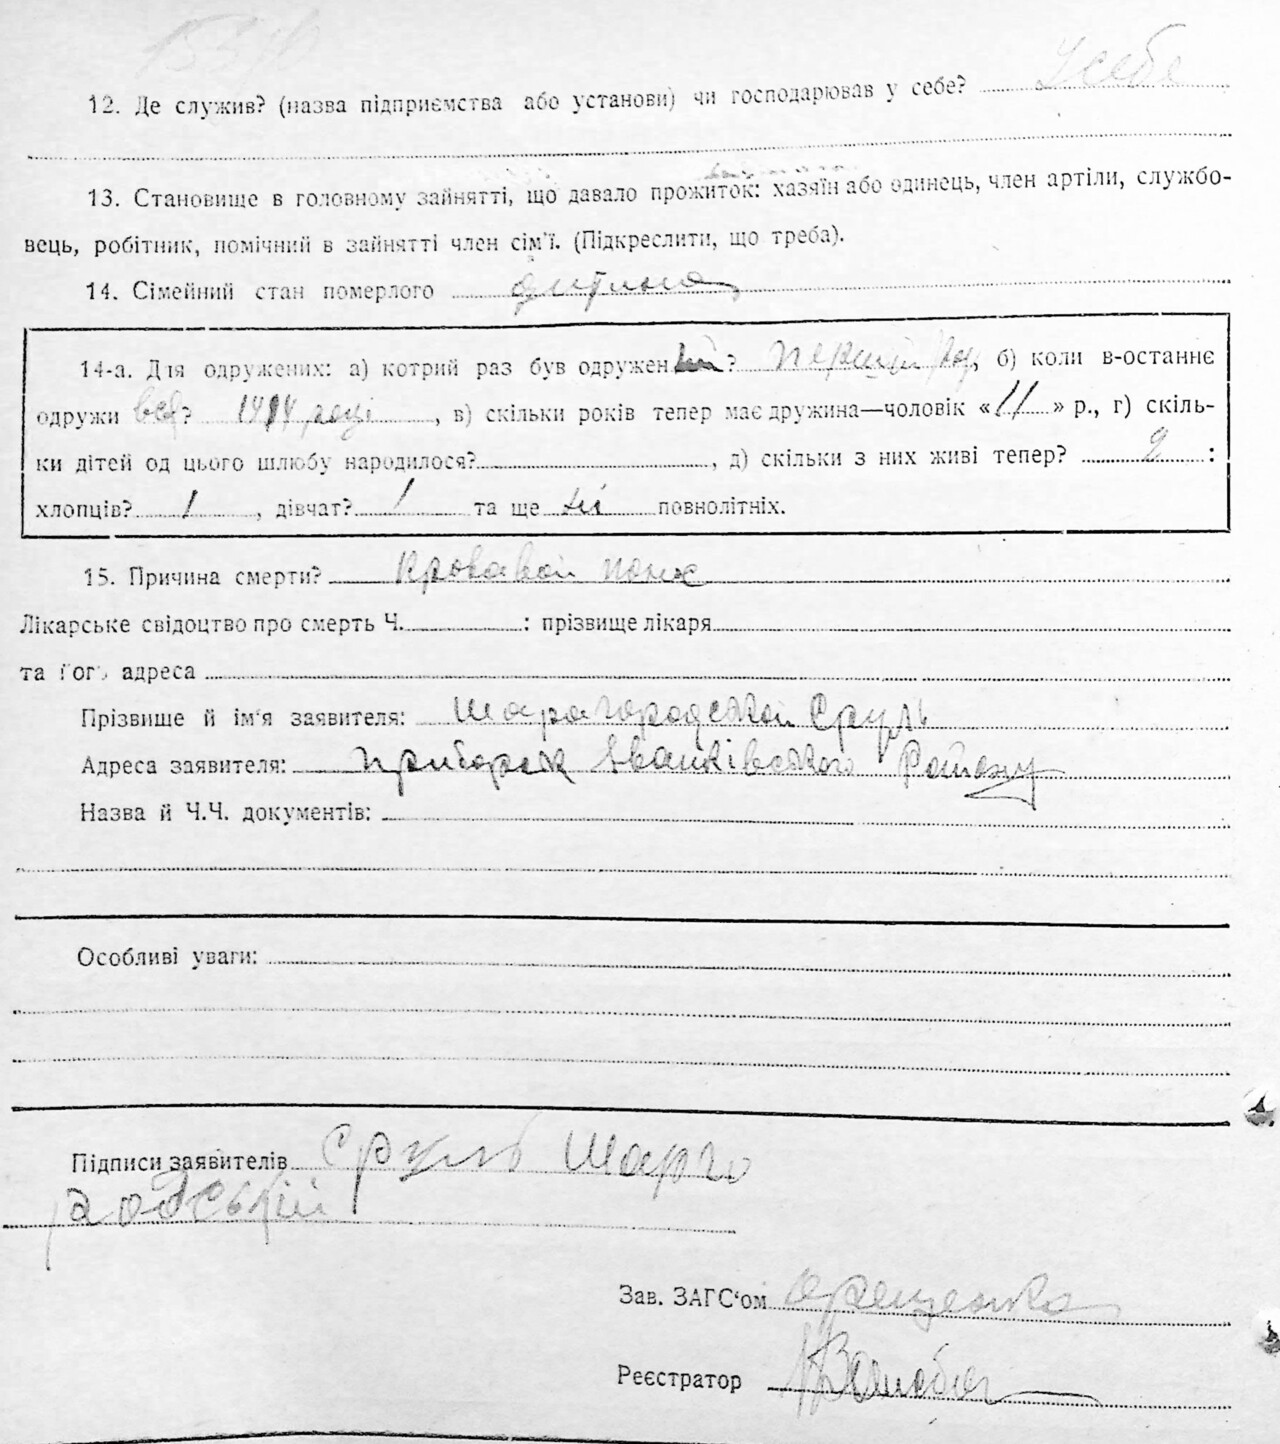 12. Де служив? (назва підприємства або установи) чи господарював у себе? У себе
13. Становище в головному зайнятті, що давало прожиток: хазяїн або одинець, член артіли, службо-
вець, робітник, помічний в зайнятті член сім'ї. (Підкреслити, що треба).
14. Сімейний стан померлого дитина
14-а. Для одружених: а) котрий раз був одружен ? перший раз, б) коли в-останнє
одружи вся? 1914 році, в) скільки років тепер має дружина—чоловік «11» р., г) скіль-
ки дітей од цього шлюбу народилося?, д) скільки з них живі тепер? 2 :
хлопців? 1, дівчат? 1 та ще ні повнолітніх.
15. Причина смерти? Кровавой понос
Лікарське свідоцтво про смерть Ч. : прізвище лікаря
та його адреса
Прізвище й ім'я заявителя: Шарагородской Сруль
Адреса заявителя: Приборск Іванківського Району
Назва й Ч.Ч. документів:
Особливі уваги:
Підписи заявителів Сруль Шарго
родський
Зав. ЗАГС‘ом
Реєстратор